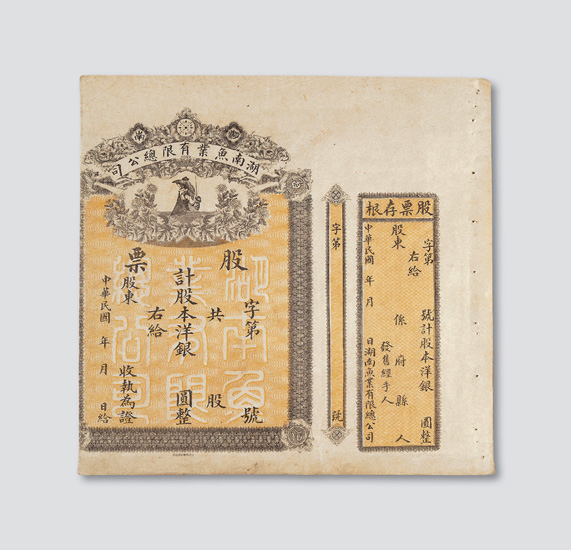 湖南魚業有限總公司
股票
字第 號
共 股
計股本洋銀 圓整
右給
股東 收執為證
中華民國 年 月 日給
字第 號
股票存根
字第 號計股本洋銀 圓整
右給
係 府 縣 人
股東 發售經手人
中華民國 年 月 日湖南魚業有限總公司